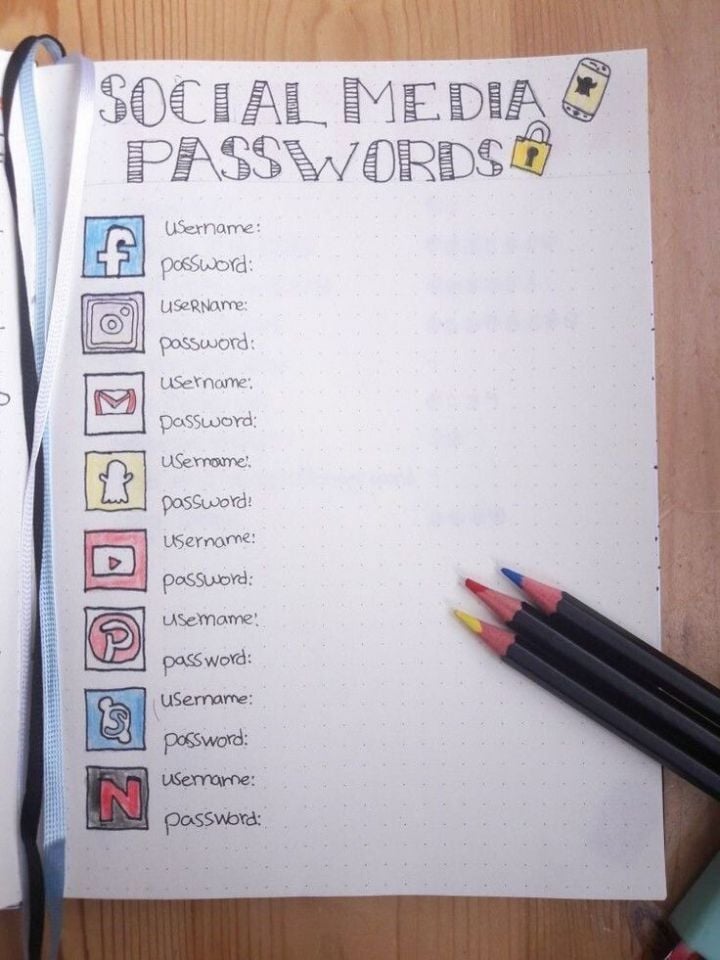 SOCIAL MEDIA
PASSWORDS
username:
password:
useRName:
password:
username:
password:
username:
password:
username:
password:
username:
password:
username:
password:
N
username:
password: